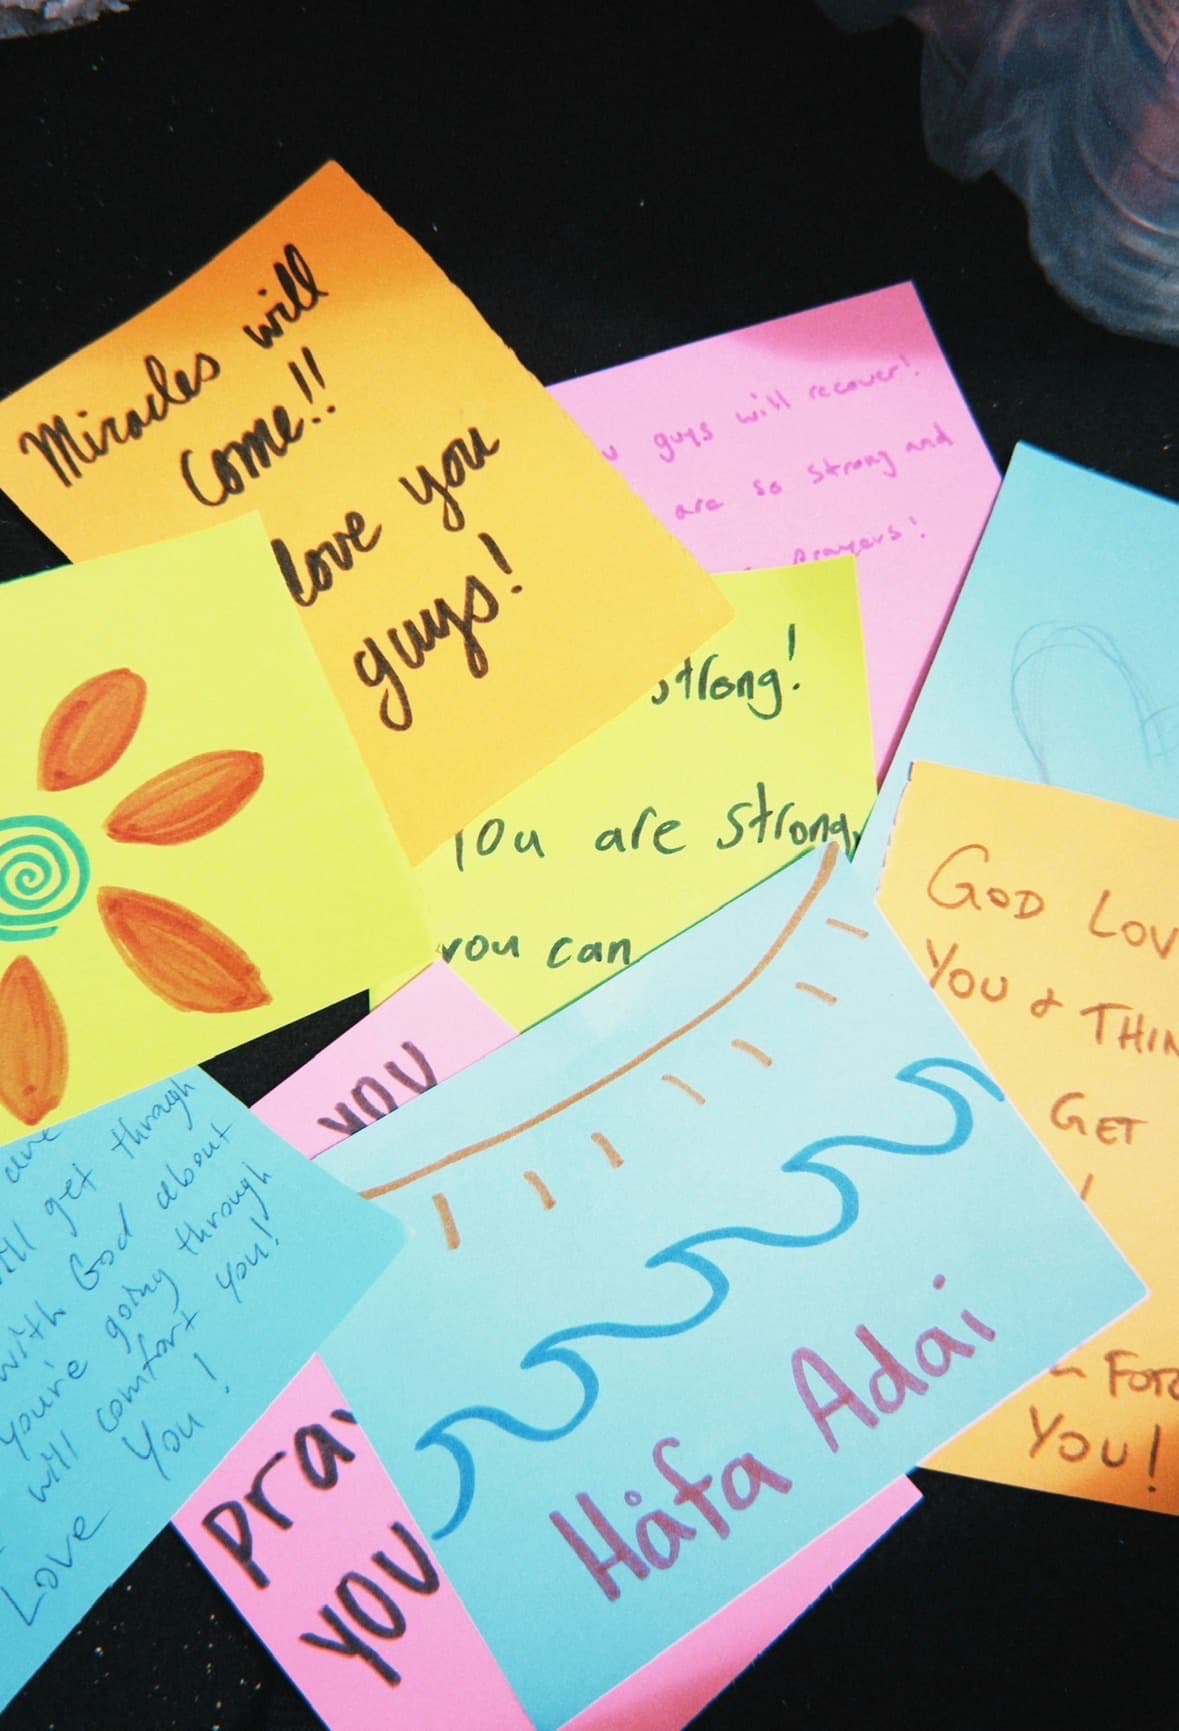 Miracles will
come!!
love you
guys!
guys will recover!
are so strong and
prayers!
strong!
You are strong,
you can
GOD LOV
YOU & THIN
GET
FOR
YOU!
YOU
are
will get through
with God about
you're going through
will comfort you!
Love you!
pray
YOU
Håfa Adai